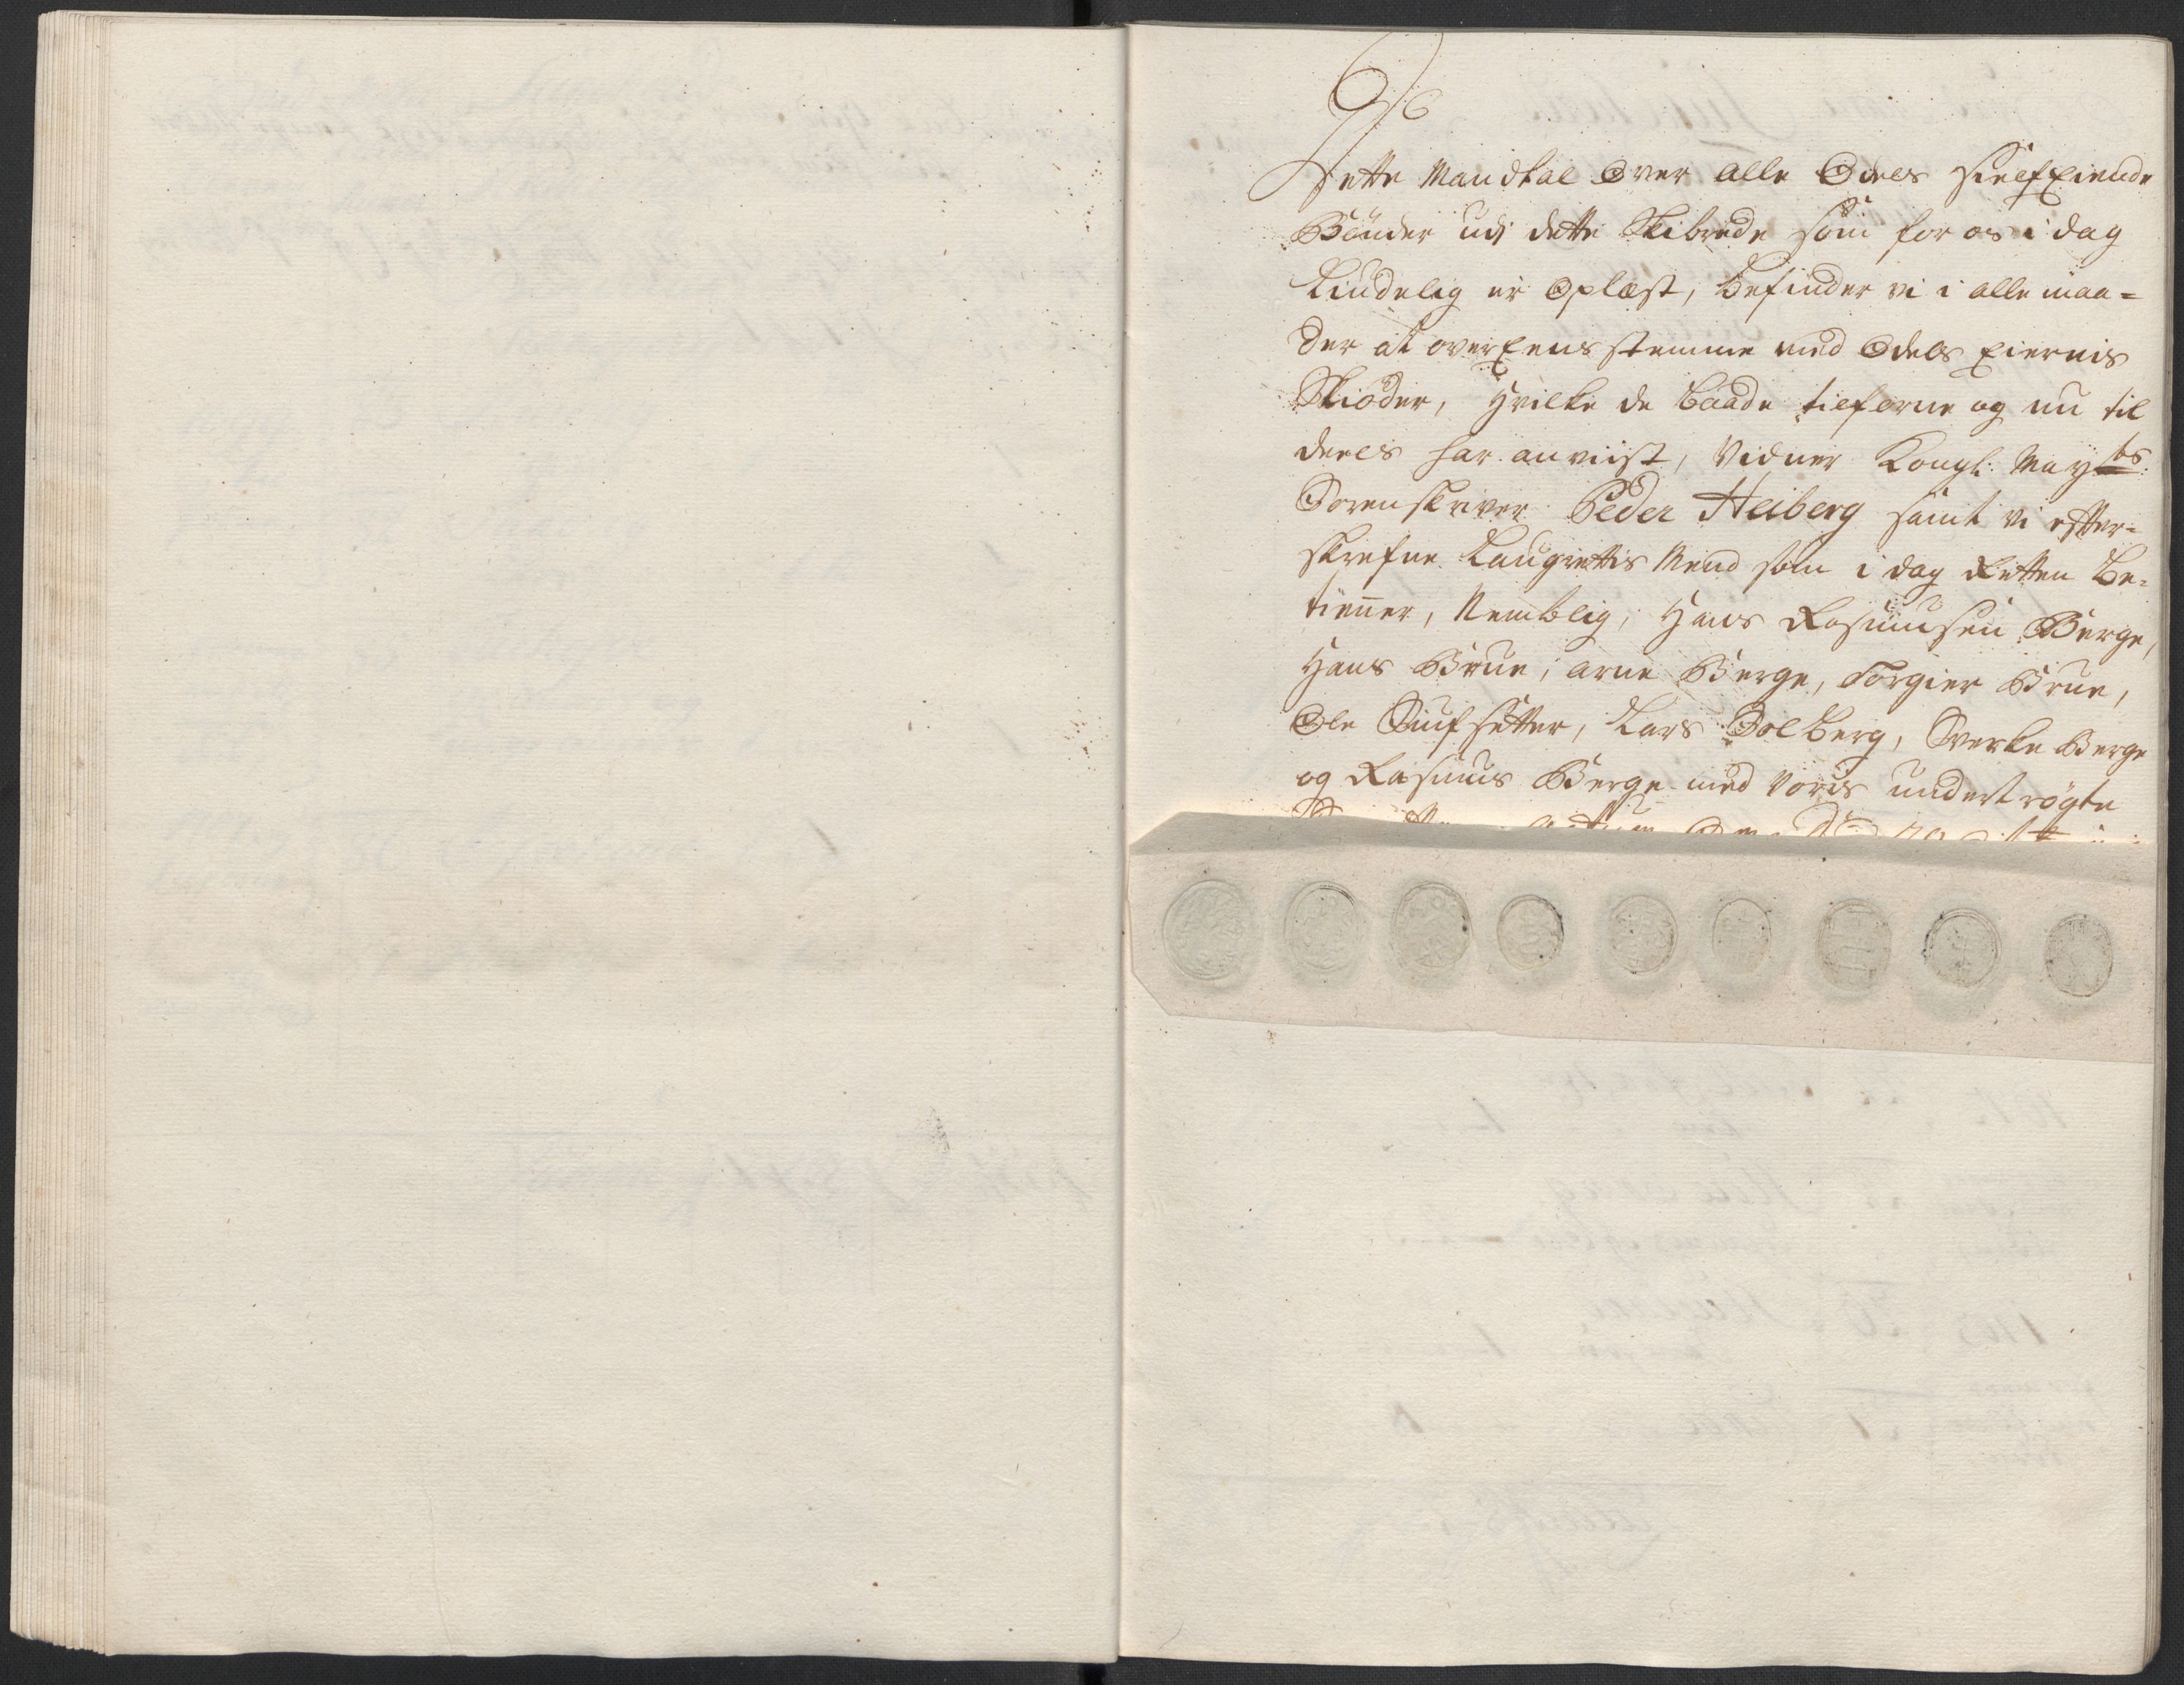 Dette Mandtal Over alle Odels sielf Eiende
Bönder udj dette Skibrede som for os i dag
Liudelig er Oplæst, befinder vi i alle maa=
der at over Eens stemme med Odels Eiernis
Skiöder, hvilke de baade tilforne og nu til
deels har anviist, Vidner Kongl: May ts:
Sorenskriver Peder Heiberg samt vi efter=
skrefne Laugrettis Mend som i dag Retten be=
tienner, Nemblig, Hans Rasmusen Berge,
Hans Brue, Arne Berge, Torgier Brue,
Ole Lars Dolberg, Sverke Berge
og Rasmus Berge med voris undertrögte